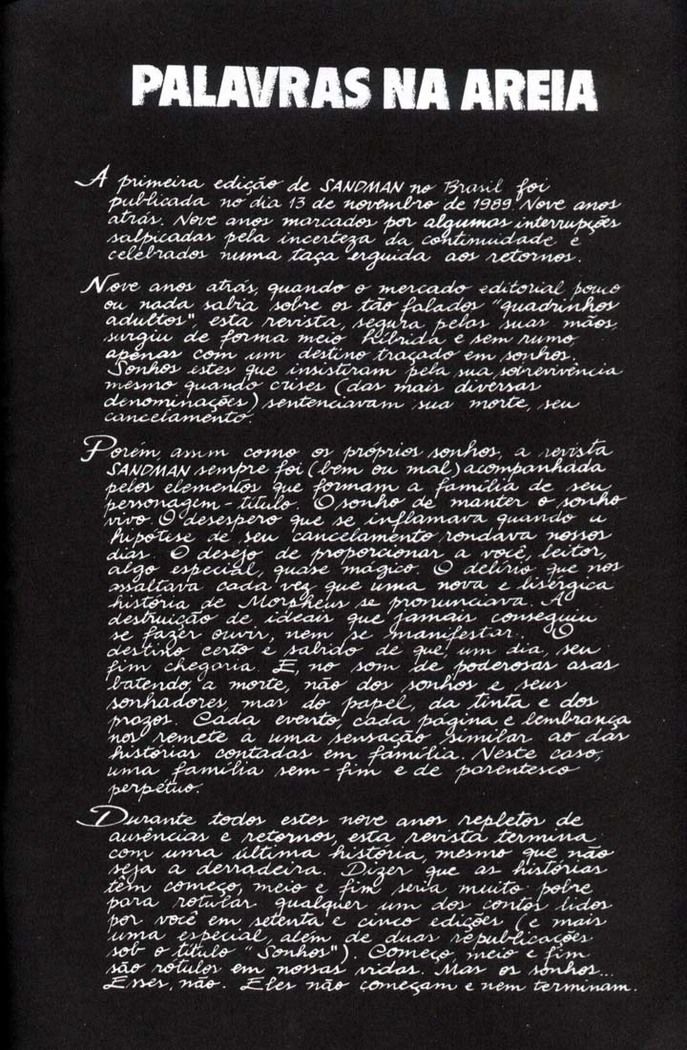 PALAVRAS NA AREIA
A primeira edição de SANDMAN no Brasil foi
publicada no dia 13 de novembro de 1989. Nove anos
atrás. Nove anos marcados por algumas interrupções
salpicadas pela incerteza da continuidade e
celebrados numa taça erguida aos retornos.
Nove anos atrás, quando o mercado editorial pouco
ou nada sabia sobre os tão falados "quadrinhos
adultos", esta revista, segura pelas suas mãos,
surgiu de forma meio híbrida e sem rumo
apenas com um destino traçado em sonhos.
Sonhos estes que insistiram pela sua sobrevivência
mesmo quando crises (das mais diversas
denominações) sentenciavam sua morte, seu
cancelamento.
Porém, assim como os próprios sonhos, a revista
SANDMAN sempre foi (bem ou mal) acompanhada
pelos elementos que formam a família de seu
personagem-título. O sonho de manter o sonho
vivo. O desespero que se inflamava quando a
hipótese de seu cancelamento rondava nossos
dias. O desejo de proporcionar a você, leitor,
algo especial, quase mágico. O delírio que nos
assaltava cada vez que uma nova e lisérgica
história de Morpheus se pronunciava. A
destruição de ideais que jamais conseguiu
se fazer ouvir, nem se manifestar. O
destino certo e sabido de que, um dia, seu
fim chegaria. E, no som de poderosas asas
batendo, a morte, não dos sonhos e seus
sonhadores, mas do papel, da tinta e dos
prazos. Cada evento, cada página e lembrança
nos remete a uma sensação similar ao das
histórias contadas em família. Neste caso,
uma família sem-fim e de parentesco
perpétuo.
Durante todos estes nove anos repletos de
ausências e retornos, esta revista termina
com uma última história, mesmo que não
seja a derradeira. Dizer que as histórias
têm começo, meio e fim seria muito pobre
para rotular qualquer um dos contos lidos
por você em setenta e cinco edições (e mais
uma especial, além de duas republicações
sob o título "Sonhos"). Começo, meio e fim
são rótulos em nossas vidas. Mas os sonhos...
Esses, não. Eles não começam e nem terminam.